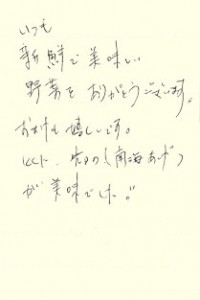 いつも
新鮮で美味しい
野菜をありがとうございます。
おまけも嬉しいです。
特に、先日の(南海あげ)
が美味でした!!